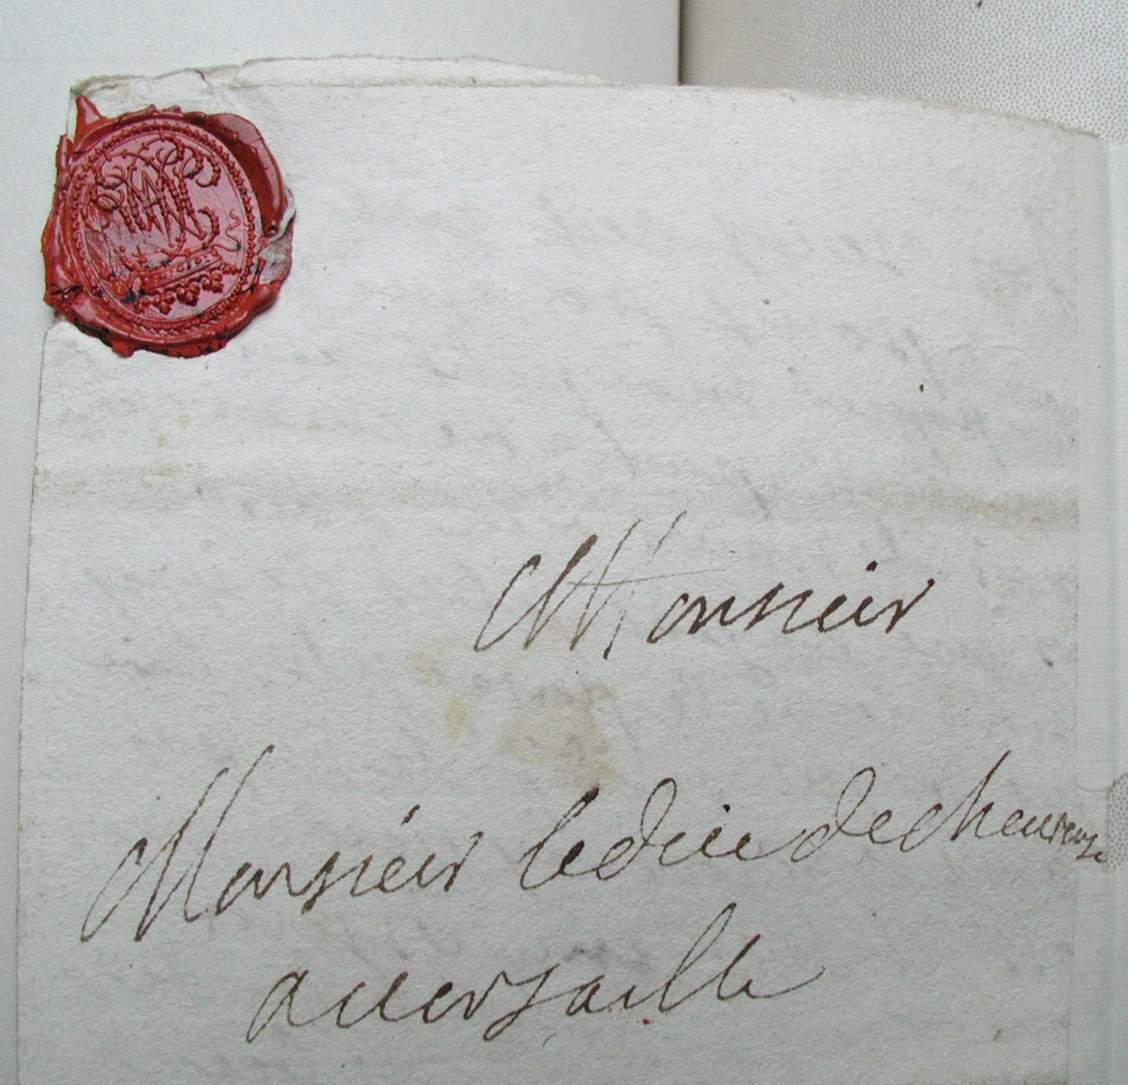 Monsieur
Monsieur le duc de chevreuse
a versaille